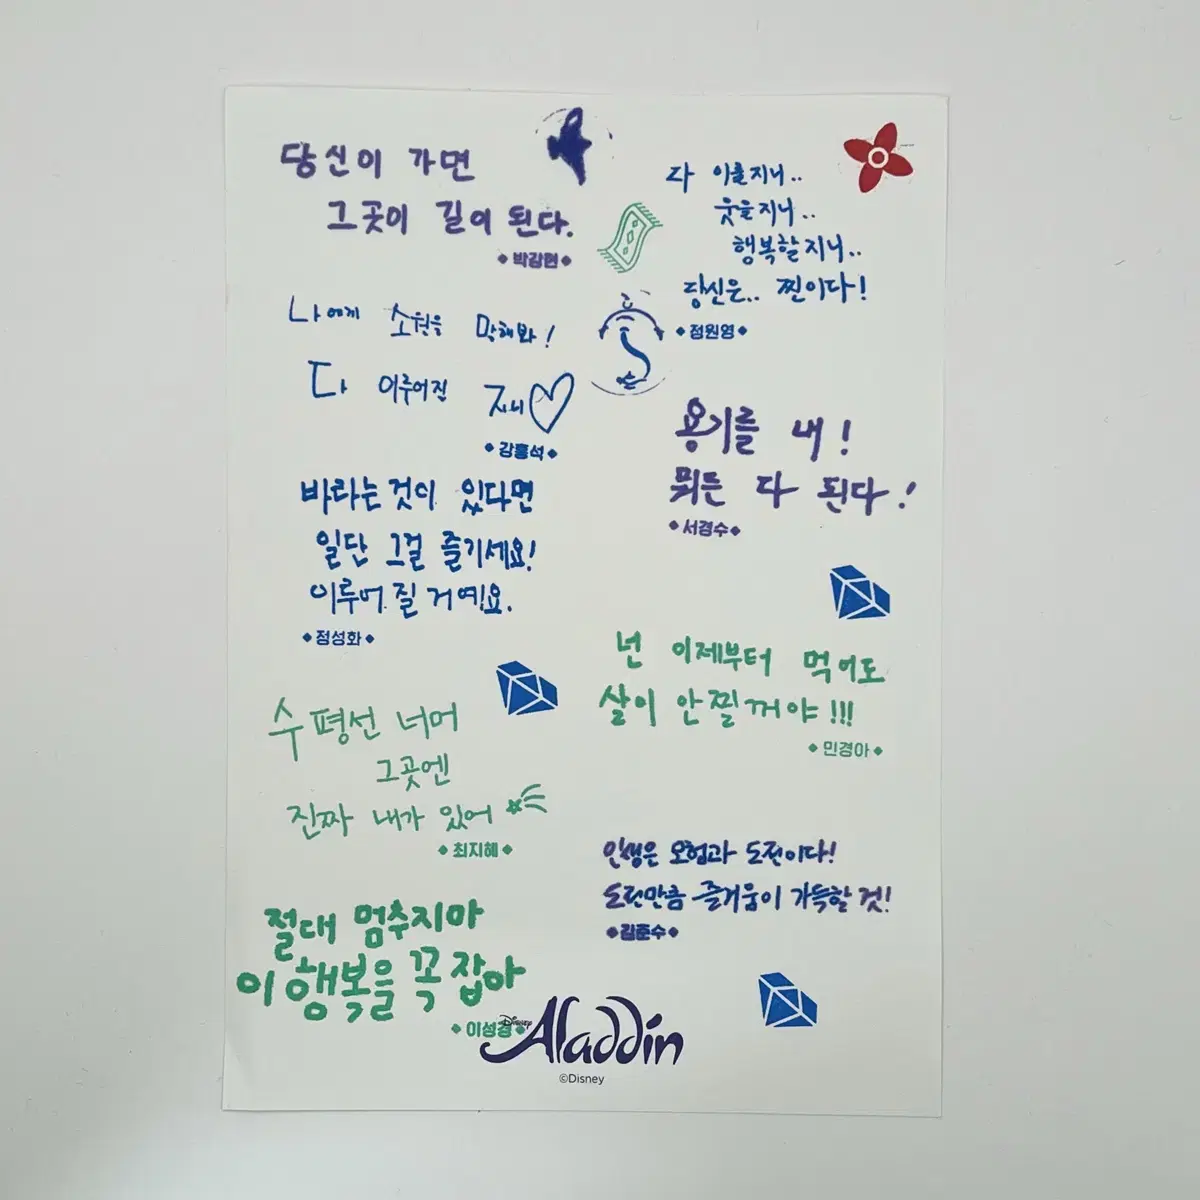 당신이 가면
그곳이 길이 된다.
박강현
다 이룰지니..
웃을지니..
행복할지니..
당신은.. 찐이다!
정원영
나에게 소원을 말해봐!
다 이루어진 지니♡
강홍석
용기를 내!
뭐든 다 된다!
서경수
바라는 것이 있다면
일단 그걸 즐기세요!
이루어 질 거예요.
정성화
넌 이제부터 먹어도
살이 안찔꺼야!!!
민경아
수평선 너머
그곳엔
진짜 내가 있어
최지혜
인생은 모험과 도전이다!
도전만큼 즐거움이 가득할 것!
김준수
절대 멈추지마
이 행복을 꼭 잡아
이성경
Disney Aladdin
©Disney